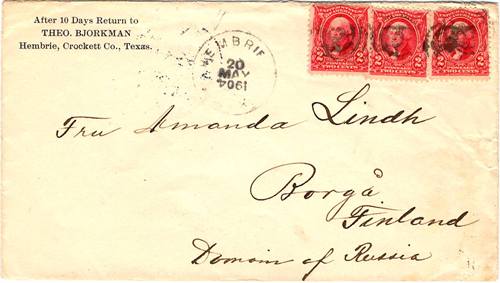 After 10 Days Return to
THEO. BJORKMAN
Hembrie, Crockett Co., Texas.
HEMBRIE
20
MAY
1904
POSTAGE
TWO CENTS
2 2
POSTAGE
TWO CENTS
2 2
POSTAGE
TWO CENTS
2 2
Fru Amanda Lindh
Borgå
Finland
Domain of Russia